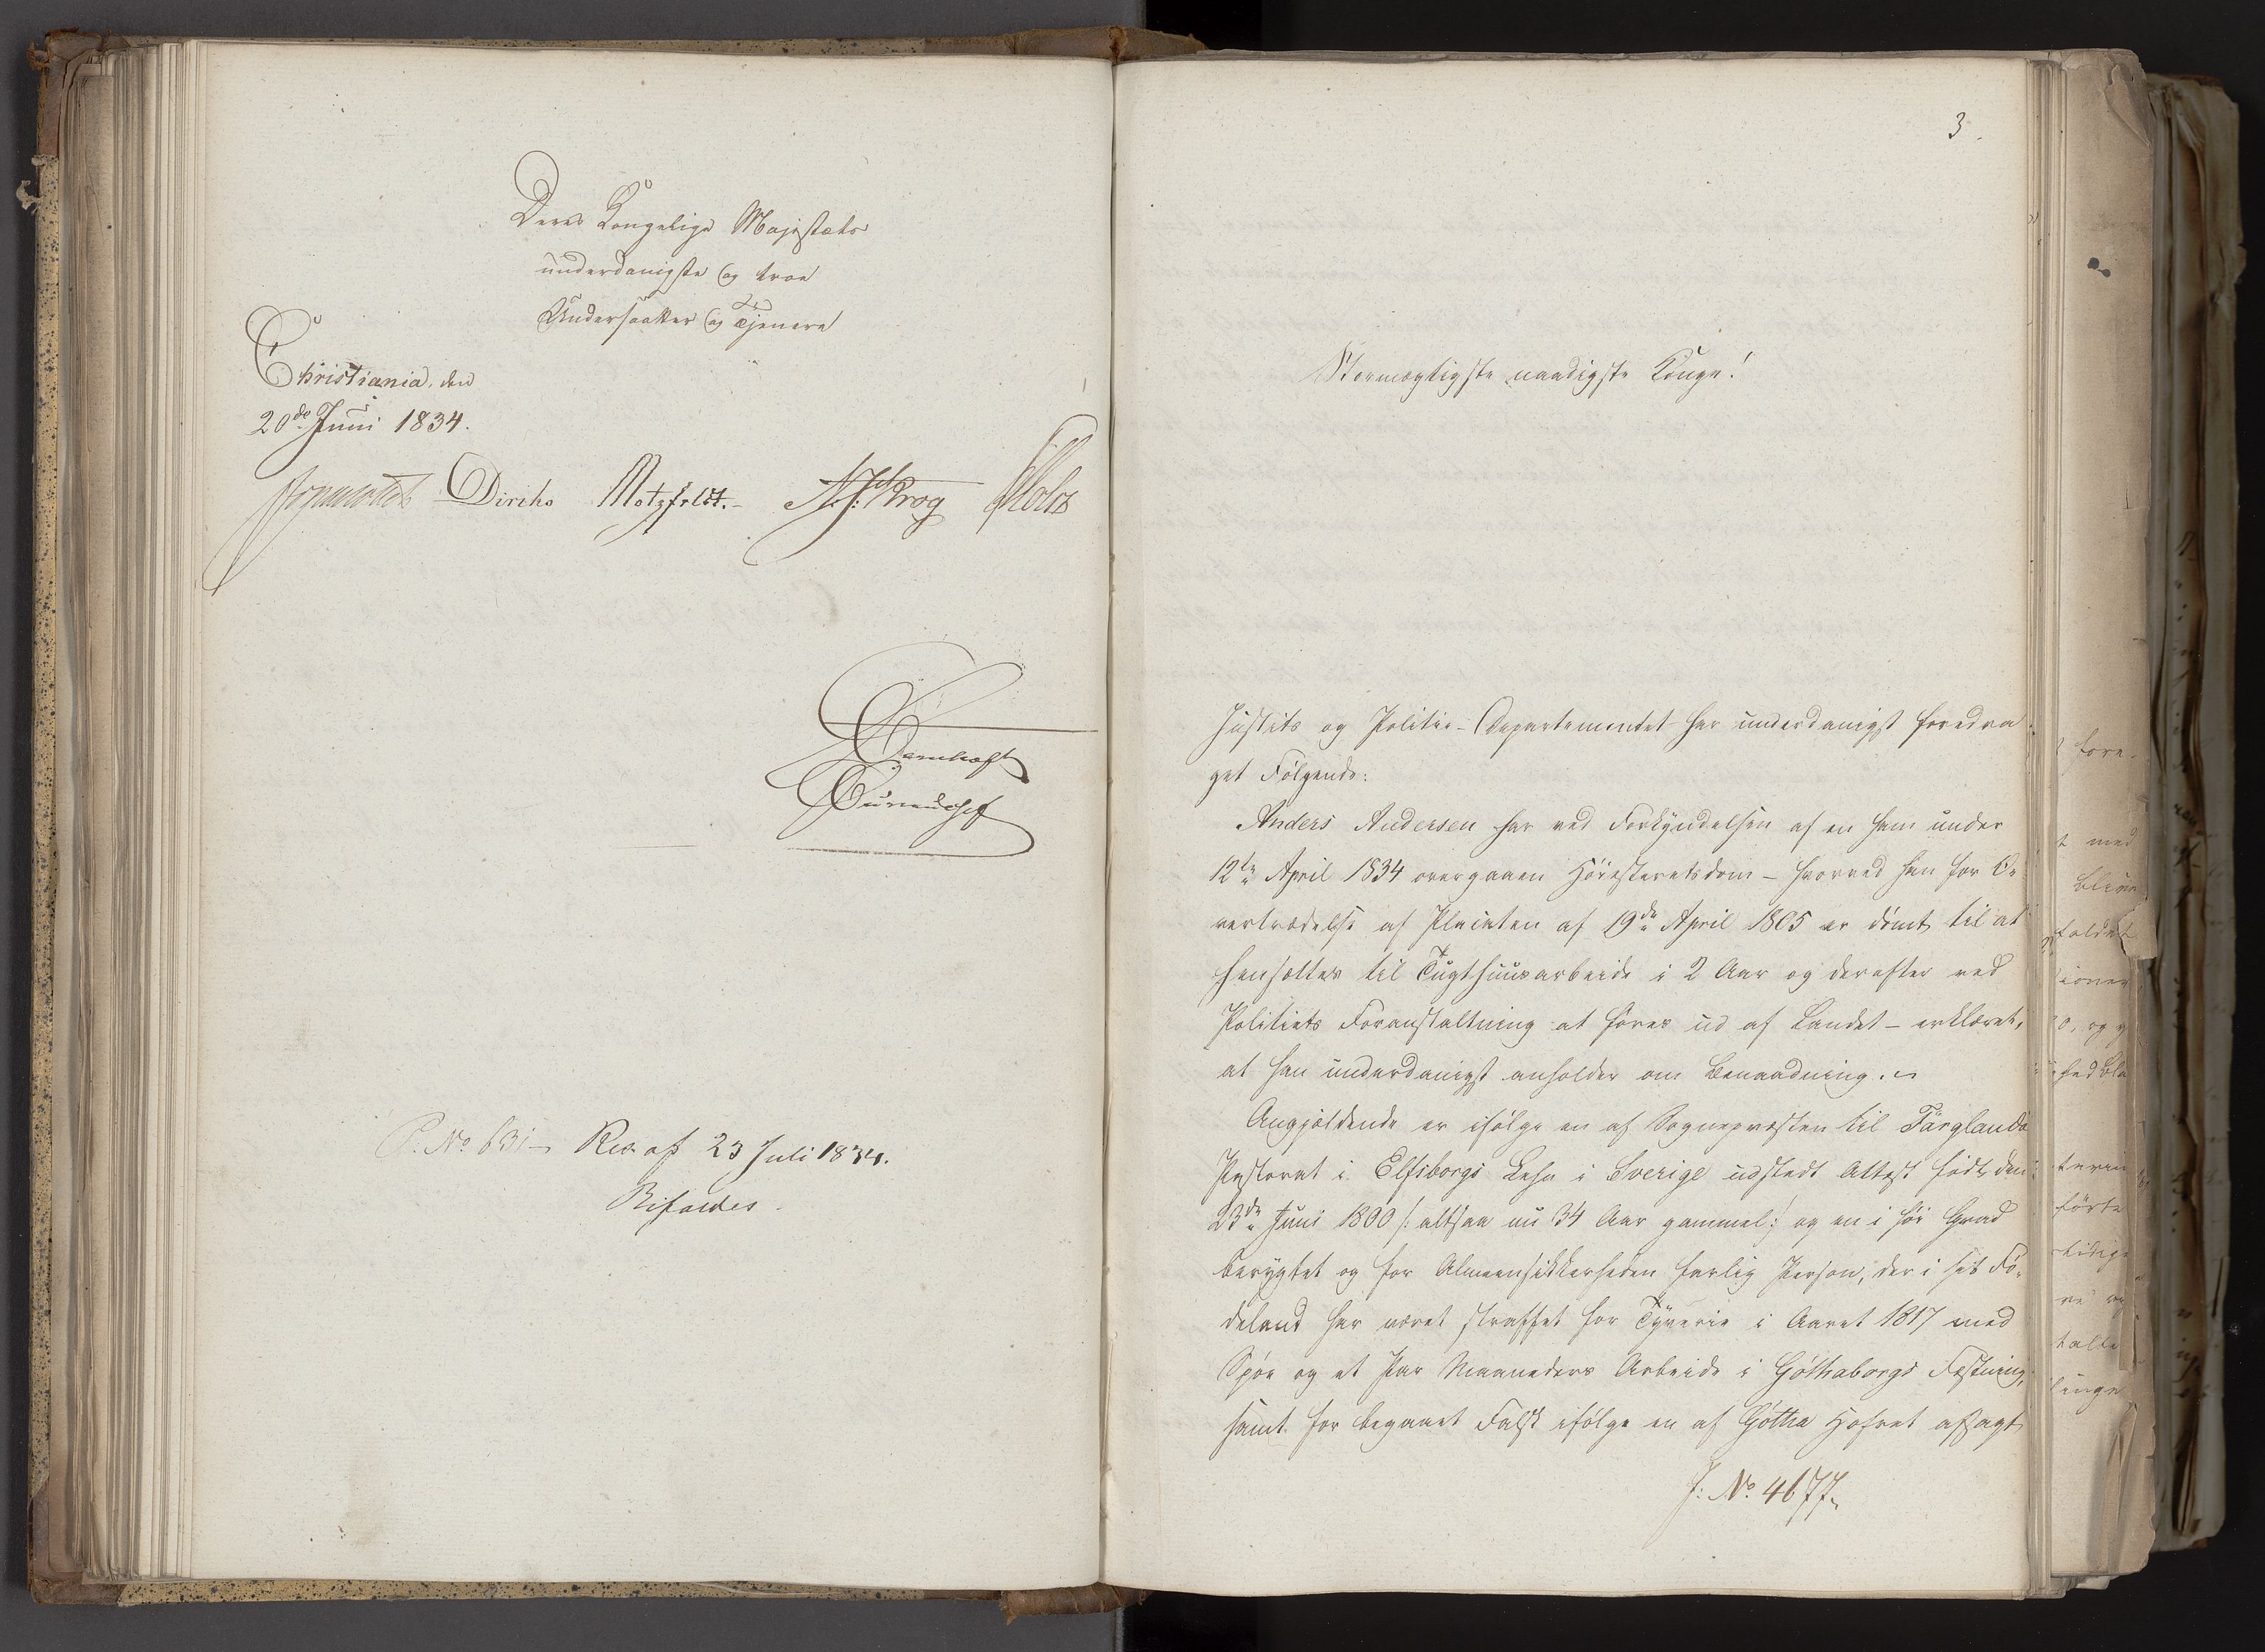 Deres Kongelige Majestæts
underdanigste og troe
Undersaatter og Tjenere
Christiania, den
20de Juni 1834.
Diriks Motzfeldt. Krog Holst
P. No 631 Res. af 23 Juli 1834.
Bifaldes.
3.
Stormægtigste naadigste Konge!
Justits og Politie-Departementet har underdanigst foredra
get Følgende:
Anders Andersen har ved Forkyndelsen af en ham under
12te April 1834 overgaaen Høiesteretsdom – hvorved han for O-
vertrædelse af Placaten af 19de April 1805 er dømt til at
hensættes til Tugthuusarbeide i 2 Aar og derefter ved
Politiets Foranstaltning at føres ud af Landet – erklæret,
at han underdanigst anholder om Benaadning.
Angjeldende er ifølge en af Sognepræsten til Färglanda
Pastorat i Elfsborgs Lehn i Sverige udstedt Attest født den
23de Juni 1800 /: altsaa nu 34 Aar gammel :/ og en i høi Grad
berygtet og for Almeensikkerheden farlig Person, der i sit Fø-
deland har været straffet for Tyverie i Aaret 1817 med
Spøe og et Par Maaneders Arbeide i Göthaborgs Fæstning,
samt for begaaet Falsk ifølge en af Götha Hofret afsagt
J: No 4677.